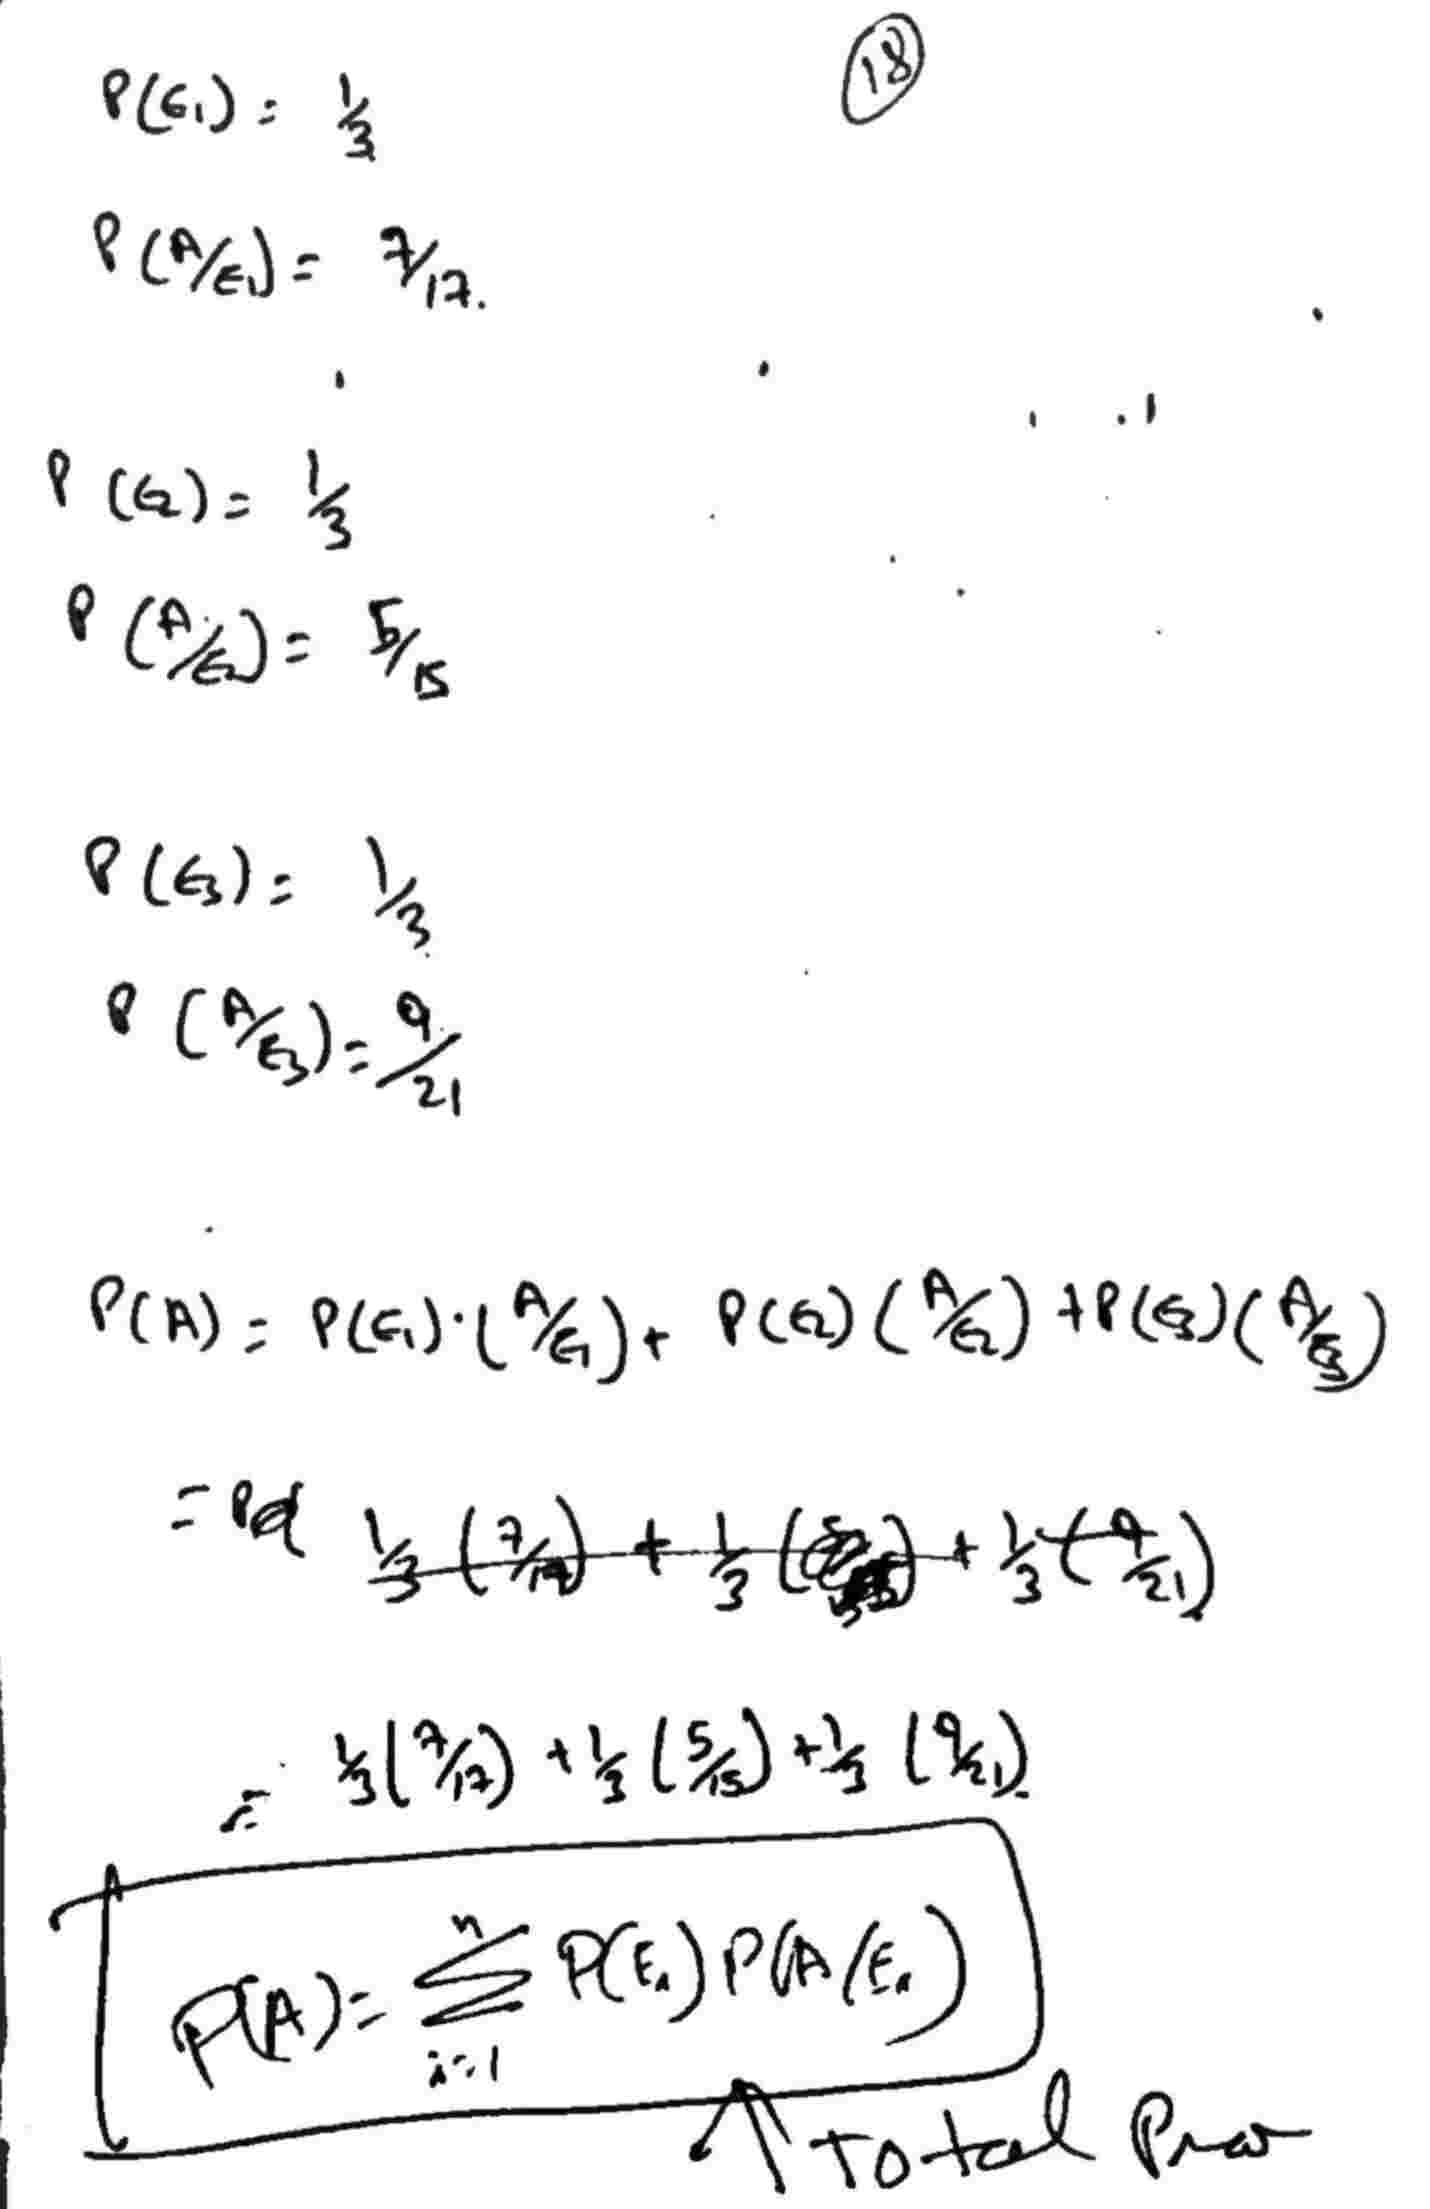 18
P(E1) = 1/3
P(A/E1) = 7/17.
P(E2) = 1/3
P(A/E2) = 5/15
P(E3) = 1/3
P(A/E3) = 9/21
P(A) = P(E1)·(A/E1) + P(E2)(A/E2) + P(E3)(A/E3)
= 1/3 (7/17) + 1/3 ( ) + 1/3 (9/21)
= 1/3 (7/17) + 1/3 (5/15) + 1/3 (9/21)
P(A) = n Σ i=1 P(Ei) P(A/Ei)
Total